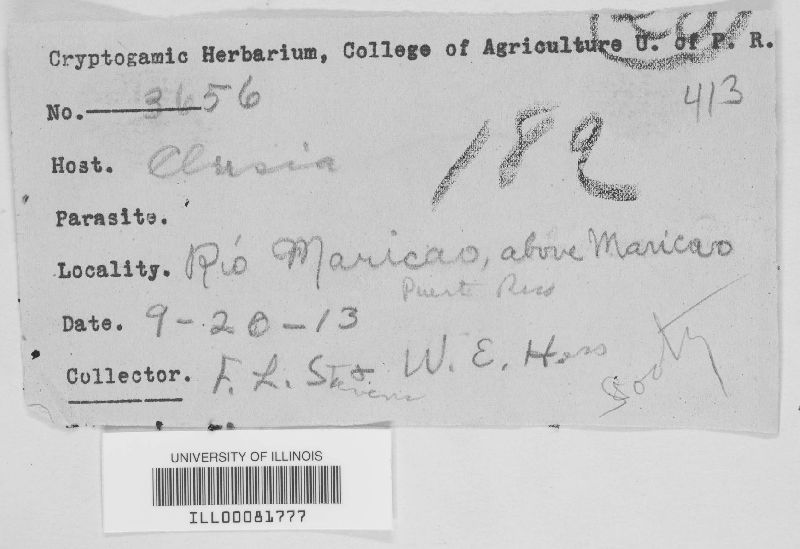 Cryptogamic Herbarium, College of Agriculture U. of P. R.
No. 3656
413
Host. Clusia
189
Parasite.
Locality. Rió Maricao, above Maricao
Puerto Rico
Date. 9-20-13
Collector. F. L. Stevens & W. E. Hess
Sooty
UNIVERSITY OF ILLINOIS
ILL00081777